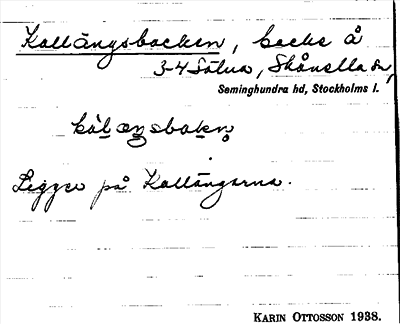 Kallängsbacken, backe å
3-4 Sälna, Skånella sn,
Seminghundra hd, Stockholms l.
Ligger på Kallängarna.
KARIN OTTOSSON 1938.